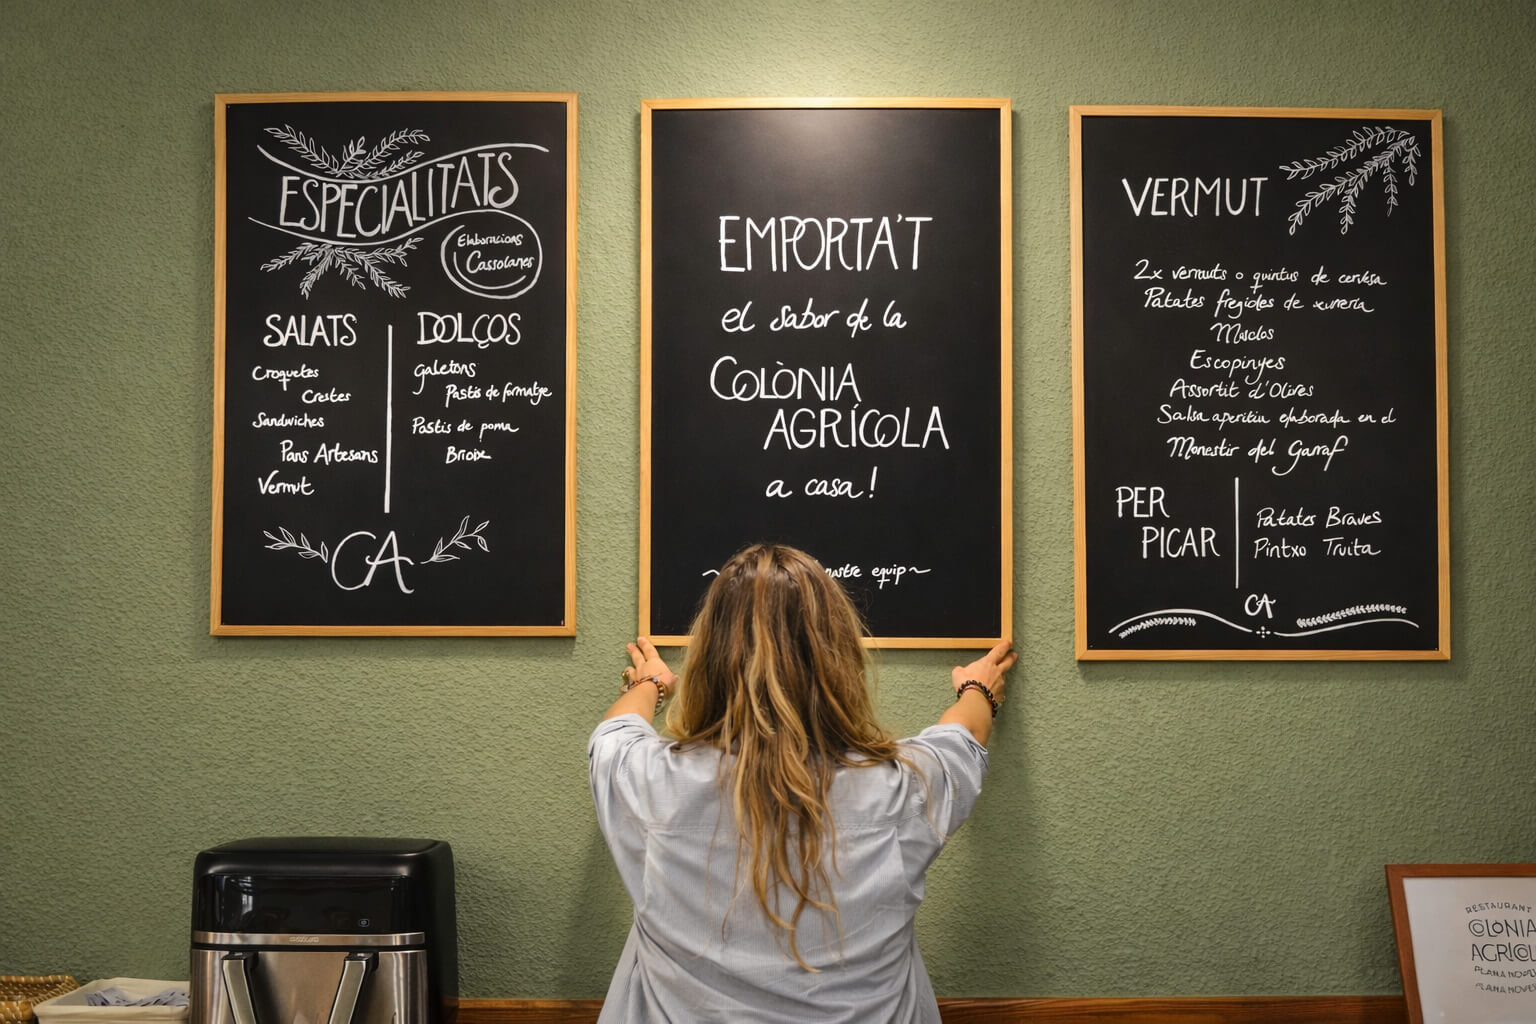 ESPECIALITATS
Elaboracions
Cassolanes
SALATS
Croquetes
Crestes
Sandwiches
Pans Artesans
Vermut
DOLÇOS
galetons
Pastís de formatge
Pastís de poma
Brioix
CA
EMPORTA'T
el sabor de la
COLÒNIA
AGRÍCOLA
a casa!
equip~
VERMUT
2x vermuts o quintus de cervesa
Patates fregides de xurreria
Musclos
Escopinyes
Assortit d'Olives
Salsa aperitiu elaborada en el
Monestir del Garraf
PER
PICAR
Patates Braves
Pintxo Truita
CA
RESTAURANT
COLÒNIA
AGRÍCOL